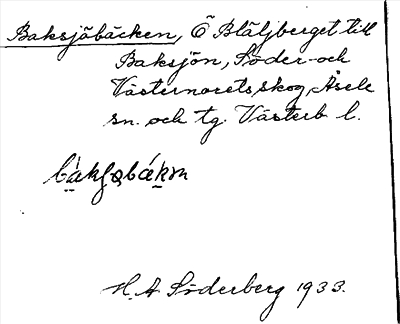 Baksjöbäcken, Ö Blåljberget till
Baksjön, Söder- och
Västernorets skog, Åsele
sn. och tg. Västerb l.
H. A Söderberg 1933.